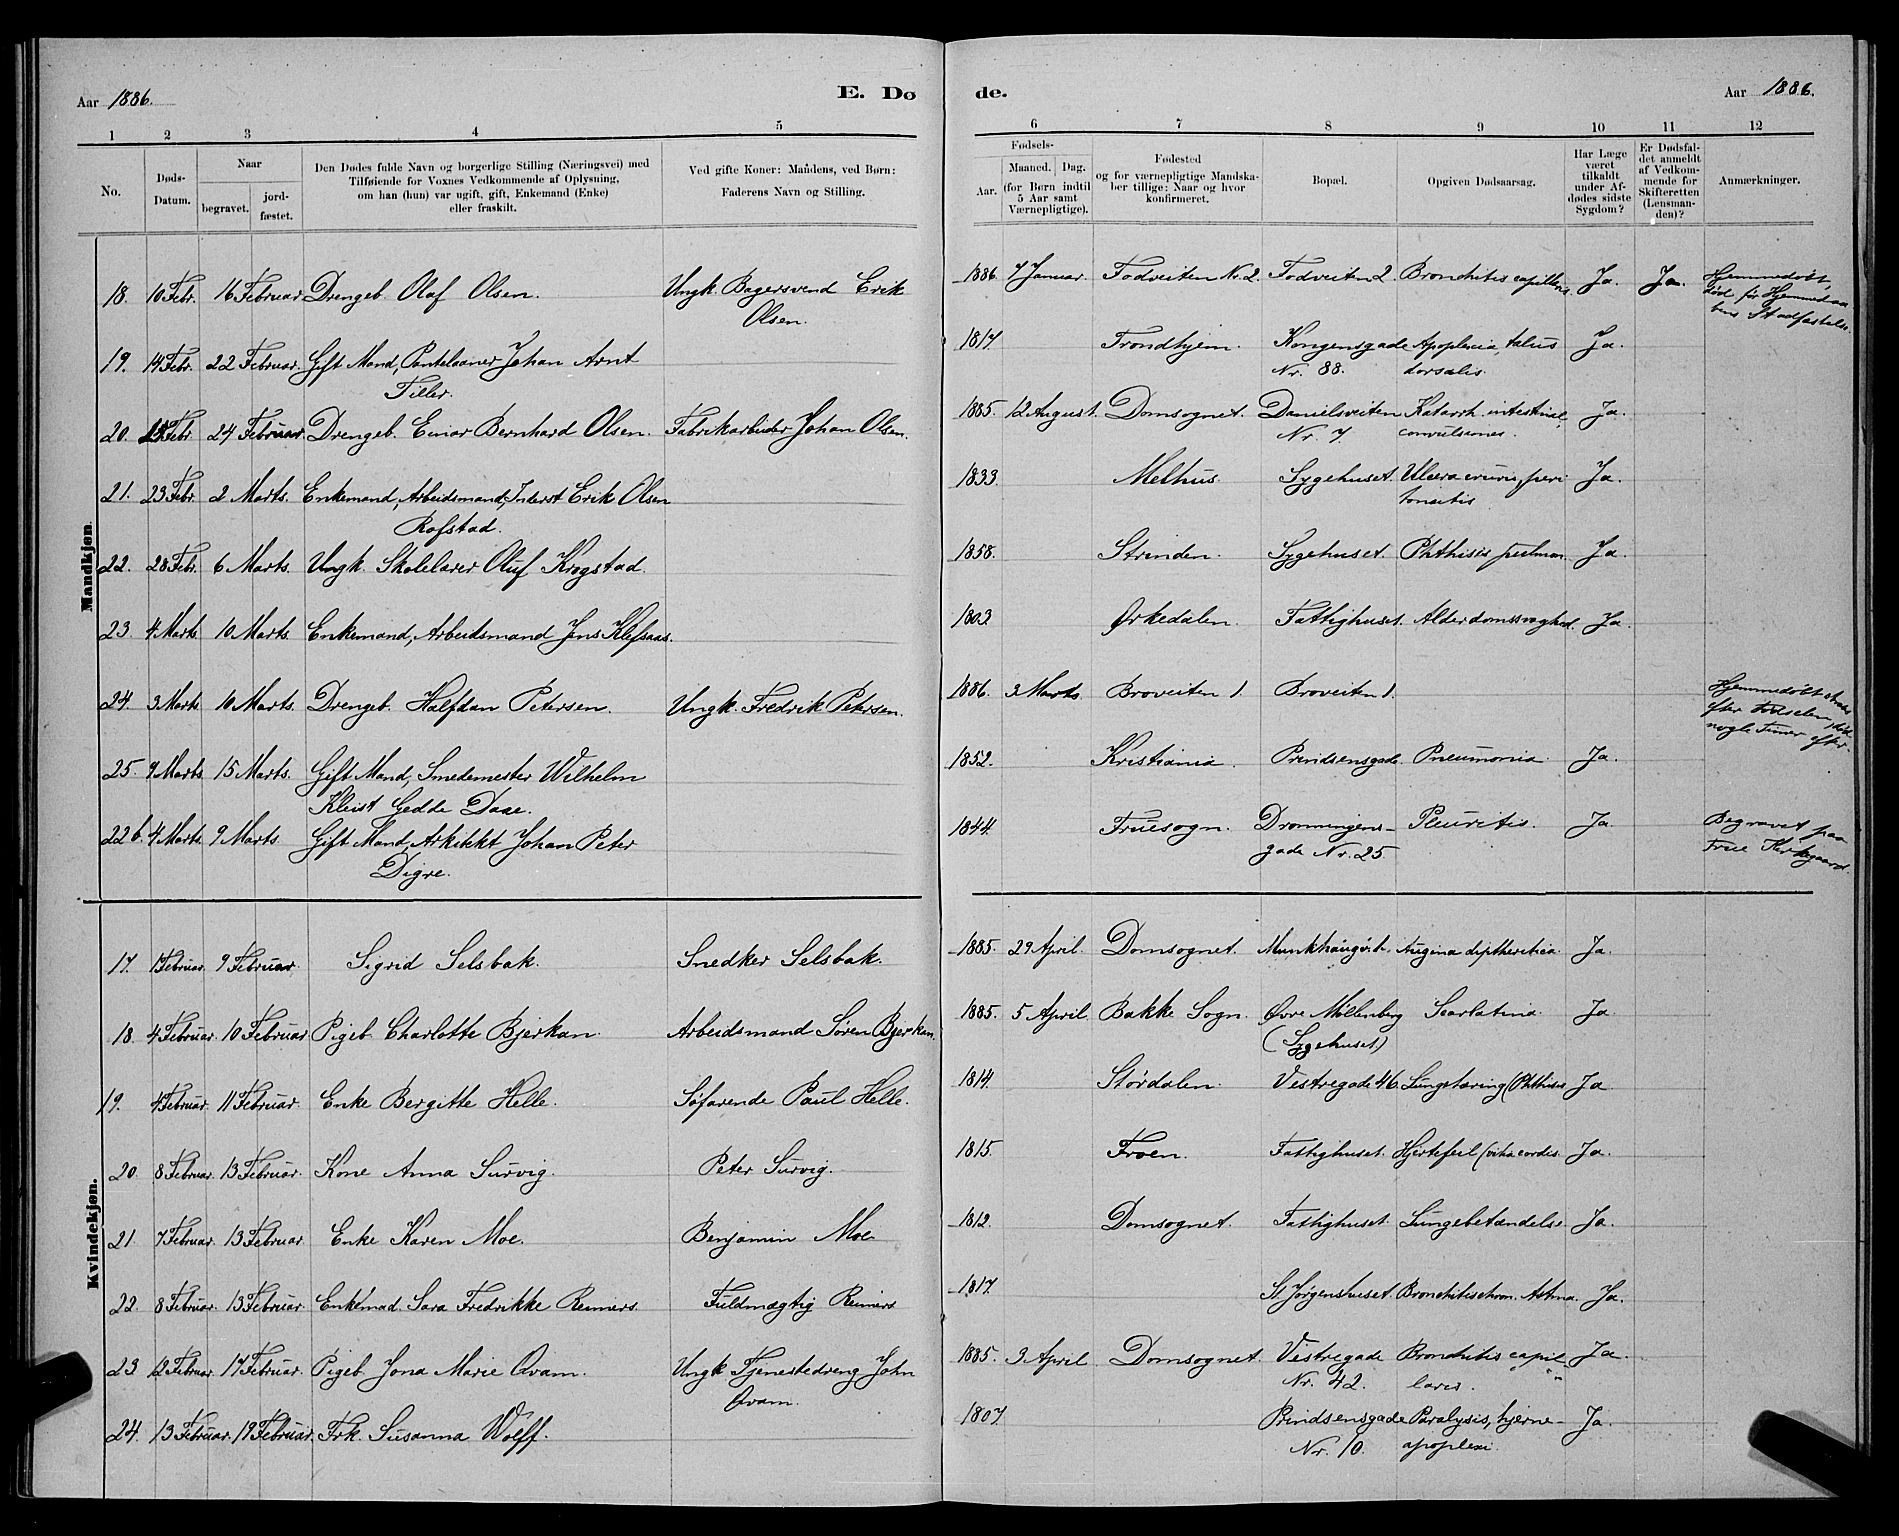 Aar 1886. E. Dø de. Aar 1886.
1 2 3 4 5 6 7 8 9 10 11 12
No.
Døds-Datum.
Naar
begravet.
jord-fæstet.
Den Dødes fulde Navn og borgerlige Stilling (Næringsvei) med
Tilføiende for Voxnes Vedkommende af Oplysning,
om han (hun) var ugift, gift, Enkemand (Enke)
eller fraskilt.
Ved gifte Koner: Mandens, ved Børn:
Faderens Navn og Stilling.
Fødsels-
Aar.
Maaned. Dag.
(for Børn indtil
5 Aar samt
Værnepligtige).
Fødested
og for værnepligtige Mandska-
ber tillige: Naar og hvor
konfirmeret.
Bopæl.
Opgiven Dødsaarsag.
Har Læge
været
tilkaldt
under Af-
dødes sidste
Sygdom?
Er Dødsfal-
det anmeldt
af Vedkom-
mende for
Skifteretten
(Lensman-
den)?
Anmærkninger.
Mandkjøn.
18. 10 Febr. 16 Februar Drengeb. Olaf Olsen. Ungk. Bagersvend Erik 1886. 7 Januar. Todveiten Nr. 2. Todveiten 2. Bronchitis capillaris Ja. Ja. Hjemmedøbt,
Olsen. død før Hjemmedaa
bens Stadfæstelse.
19. 14 Febr. 22 Februar. Gift Mand, Pantelaaner Johan Arnt 1817. Trondhjem. Kongensgade Apoplexia, tabes Ja.
Tiller. Nr. 88. dorsalis.
20. Febr. 24 Februar Drengeb. Einar Bernhard Olsen. Fabrikarbeider Johan Olsen. 1885. 12 August. Domsognet. Danielsveiten Katarrh. intestinal, Ja.
Nr. 7. convulsiones.
21. 23 Febr. 2 Marts. Enkemand, Arbeidsmand, Inderst Erik Olsen 1833. Melhus. Sygehuset. Ulcera cruris, peri Ja.
Rofstad. tonitis
22. 28 Febr. 6 Marts. Ungk. Skolelærer Oluf Krogstad. 1858. Strinden. Sygehuset. Phthisis pulmon. Ja.
23. 4 Marts 10 Marts. Enkemand, Arbeidsmand Jens Klefsaas. 1803 Ørkedalen. Fattighuset. Alderdomssvaghed. Ja.
24. 3 Marts. 10 Marts. Drengeb. Halfdan Petersen. Ungk. Fredrik Petersen. 1886. 3 Marts Broveiten 1. Broveiten 1. Hjemmedøbt strax
efter Fødselen, død
nogle Timer efter.
25. 9 Marts. 15 Marts. Gift Mand, Smedemester Wilhelm 1852. Kristiania. Prindsensgade Pneumonia. Ja.
Kleist Gedde Daae.
22 b. 4 Marts. 9 Marts Gift Mand, Arkitekt Johan Peter 1844. Fruesogn. Dronningens- Pleuritis. Ja. Begravet paa
Digre. gade Nr. 25. Frue Kirkegaard.
Kvindekjøn.
17. 1 Februar. 9 Februar. Sigrid Selsbak. Snedker Selsbak. 1885. 29 April. Domsognet. Munkhaugv. Angina diptheritica. Ja.
18. 4 Februar. 10 Februar Pigeb. Charlotte Bjerkan. Arbeidsmand Søren Bjerkan. 1885. 5 April. Bakke Sogn. Øvre Møllenberg Scarlatina. Ja.
(Sygehuset)
19. 4 Februar. 11 Februar. Enke Bergitte Helle. Søfarende Paul Helle. 1814. Størdalen. Vestregade 46. Lungetæring (Phthisis Ja.
20. 8 Februar. 13 Februar. Kone Anna Survig. Peter Survig. 1815. Froen. Fattighuset. Hjertefeil (vitia cordis. Ja.
21 7 Februar. 13 Februar. Enke Karen Moe. Benjamin Moe 1812. Domsognet. Fattighuset. Lungebetændelse Ja.
22. 8 Februar. 13 Februar. Enkemad. Sara Fredrikke Reiniers. Fuldmægtig Reiniers 1817. St. Jørgenshuset. Bronchitis chron. Astma. Ja.
23 12 Februar 17 Februar. Pigeb. Jona Marie Qvam. Ungk. Tjenestedreng John 1885. 3 April Domsognet. Vestregade Bronchitis capil Ja.
Qvam. Nr. 42. laris.
24. 13 Februar. 19 Februar. Frk. Susanna Wolff. 1807. Prindsensgade Paralysis, hjerne- Ja.
Nr. 10. apoplexi.